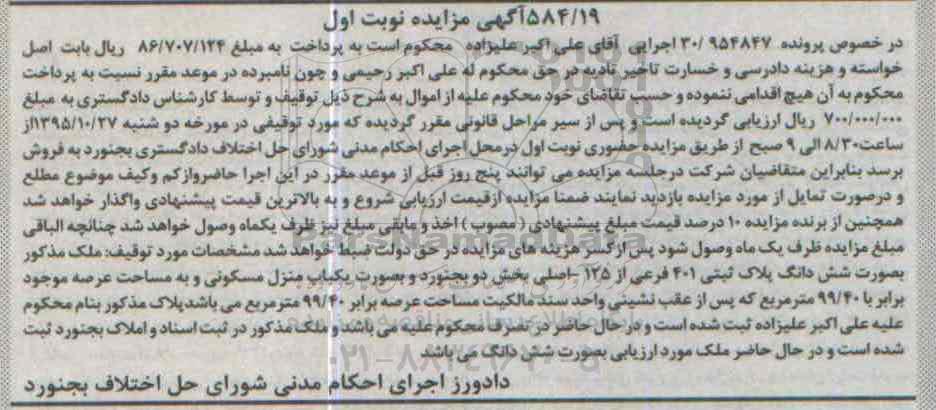 ۵۸۴/۱۹آگهی مزایده نوبت اول
در خصوص پرونده ۹۵۴۸۴۷ /۳۰ اجرایی آقای علی اکبر علیزاده محکوم است به پرداخت به مبلغ ۸۶/۷۰۷/۱۲۴ ریال بابت اصل
خواسته و هزینه دادرسی و خسارت تاخیر تادیه در حق محکوم له علی اکبر رحیمی و چون نامبرده در موعد مقرر نسبت به پرداخت
محکوم به آن هیچ اقدامی ننموده و حسب تقاضای خود محکوم علیه از اموال به شرح ذیل توقیف و توسط کارشناس دادگستری به مبلغ
۷۰۰/۰۰۰/۰۰۰ ریال ارزیابی گردیده است و پس از سیر مراحل قانونی مقرر گردیده که مورد توقیفی در مورخه دو شنبه ۱۳۹۵/۱۰/۲۷از
ساعت۸/۳۰ الی ۹ صبح از طریق مزایده حضوری نوبت اول درمحل اجرای احکام مدنی شورای حل اختلاف دادگستری بجنورد به فروش
برسد بنابراین متقاضیان شرکت درجلسه مزایده می توانند پنج روز قبل از موعد مقرر در این اجرا حاضروازکم وکیف موضوع مطلع
و درصورت تمایل از مورد مزایده بازدید نمایند ضمنا مزایده ازقیمت ارزیابی شروع و به بالاترین قیمت پیشنهادی واگذار خواهد شد
همچنین از برنده مزایده ۱۰ درصد قیمت مبلغ پیشنهادی ( مصوب ) اخذ و مابقی مبلغ نیز ظرف یکماه وصول خواهد شد چنانچه الباقی
مبلغ مزایده ظرف یک ماه وصول شود پس از کسر هزینه های مزایده در حق دولت ضبط خواهد شد مشخصات مورد توقیف: ملک مذکور
بصورت شش دانگ پلاک ثبتی ۴۰۱ فرعی از ۱۲۵ -اصلی بخش دو بجنورد و بصورت یکباب منزل مسکونی و به مساحت عرصه موجود
برابر با ۹۹/۴۰ مترمربع که پس از عقب نشینی واحد سند مالکیت مساحت عرصه برابر ۹۹/۴۰ مترمربع می باشد پلاک مذکور بنام محکوم
علیه علی اکبر علیزاده ثبت شده است و در حال حاضر در تصرف محکوم علیه می باشد و ملک مذکور در ثبت اسناد و املاک بجنورد ثبت
شده است و در حال حاضر ملک مورد ارزیابی بصورت شش دانگ می باشد
دادورز اجرای احکام مدنی شورای حل اختلاف بجنورد